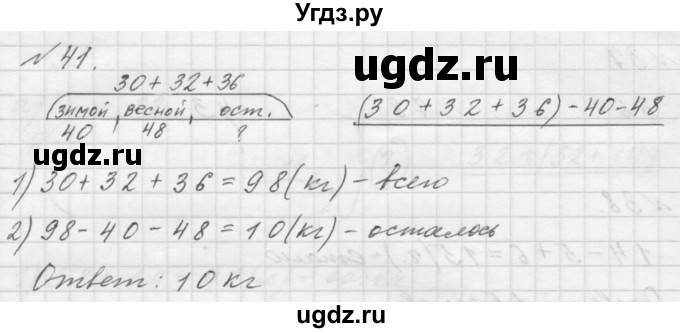 Угдз.ру
№ 41.
30 + 32 + 36
зимой, весной, ост.
40 48 ?
(30 + 32 + 36) - 40 - 48
ugdz.ru
ugdz.ru
ugdz.ru
1) 30 + 32 + 36 = 98 (кг) - всего
2) 98 - 40 - 48 = 10 (кг) - осталось
ugdz.ru
ugdz.ru
Ответ: 10 кг